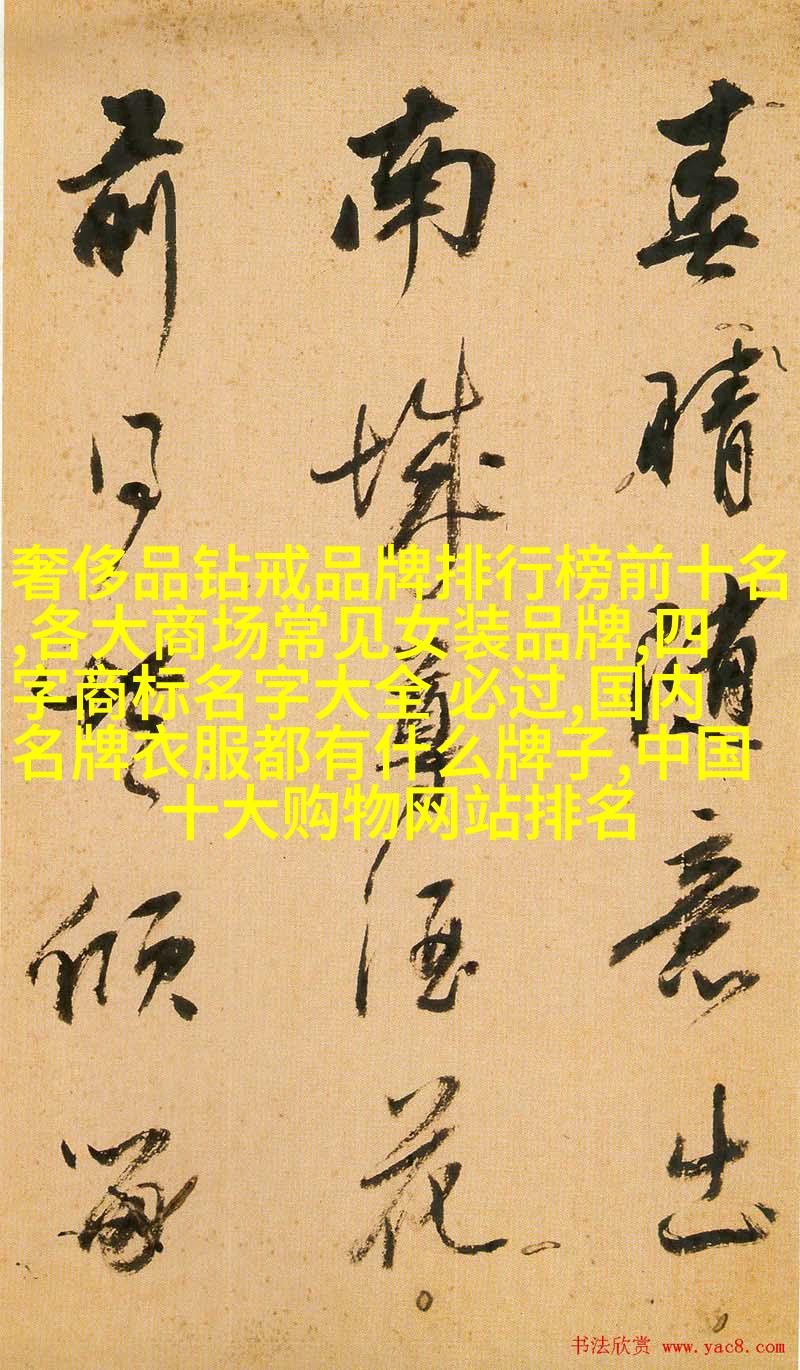 春晴随意出
南城尊酒花
前傾
奢侈品钻戒品牌排行榜前十名
,各大商场常见女装品牌,四
字商标名字大全 必过,国内
名牌衣服都有什么牌子,中国
十大购物网站排名
书法欣赏 www.yac8.com